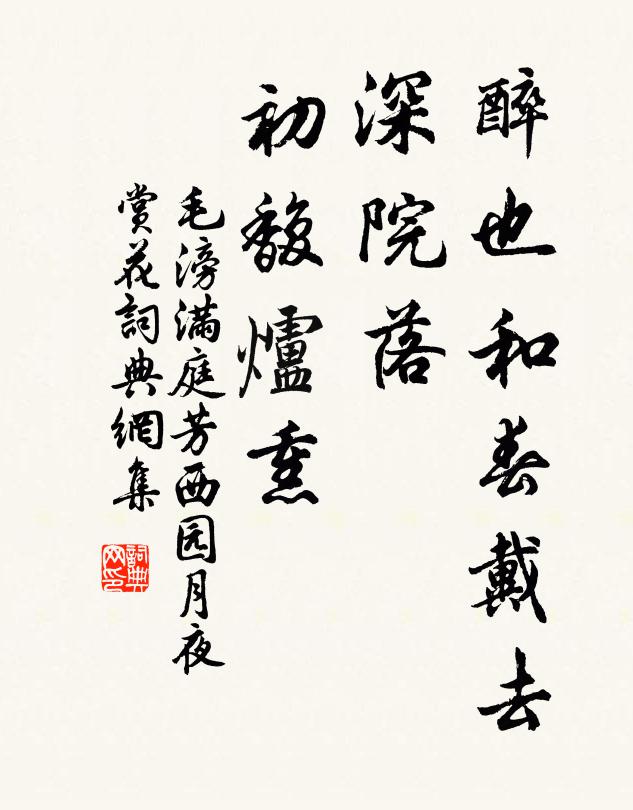 醉也和春戴去
深院落
初馥爐熏
毛滂满庭芳西园月夜
賞花詞典網集
詞典网印